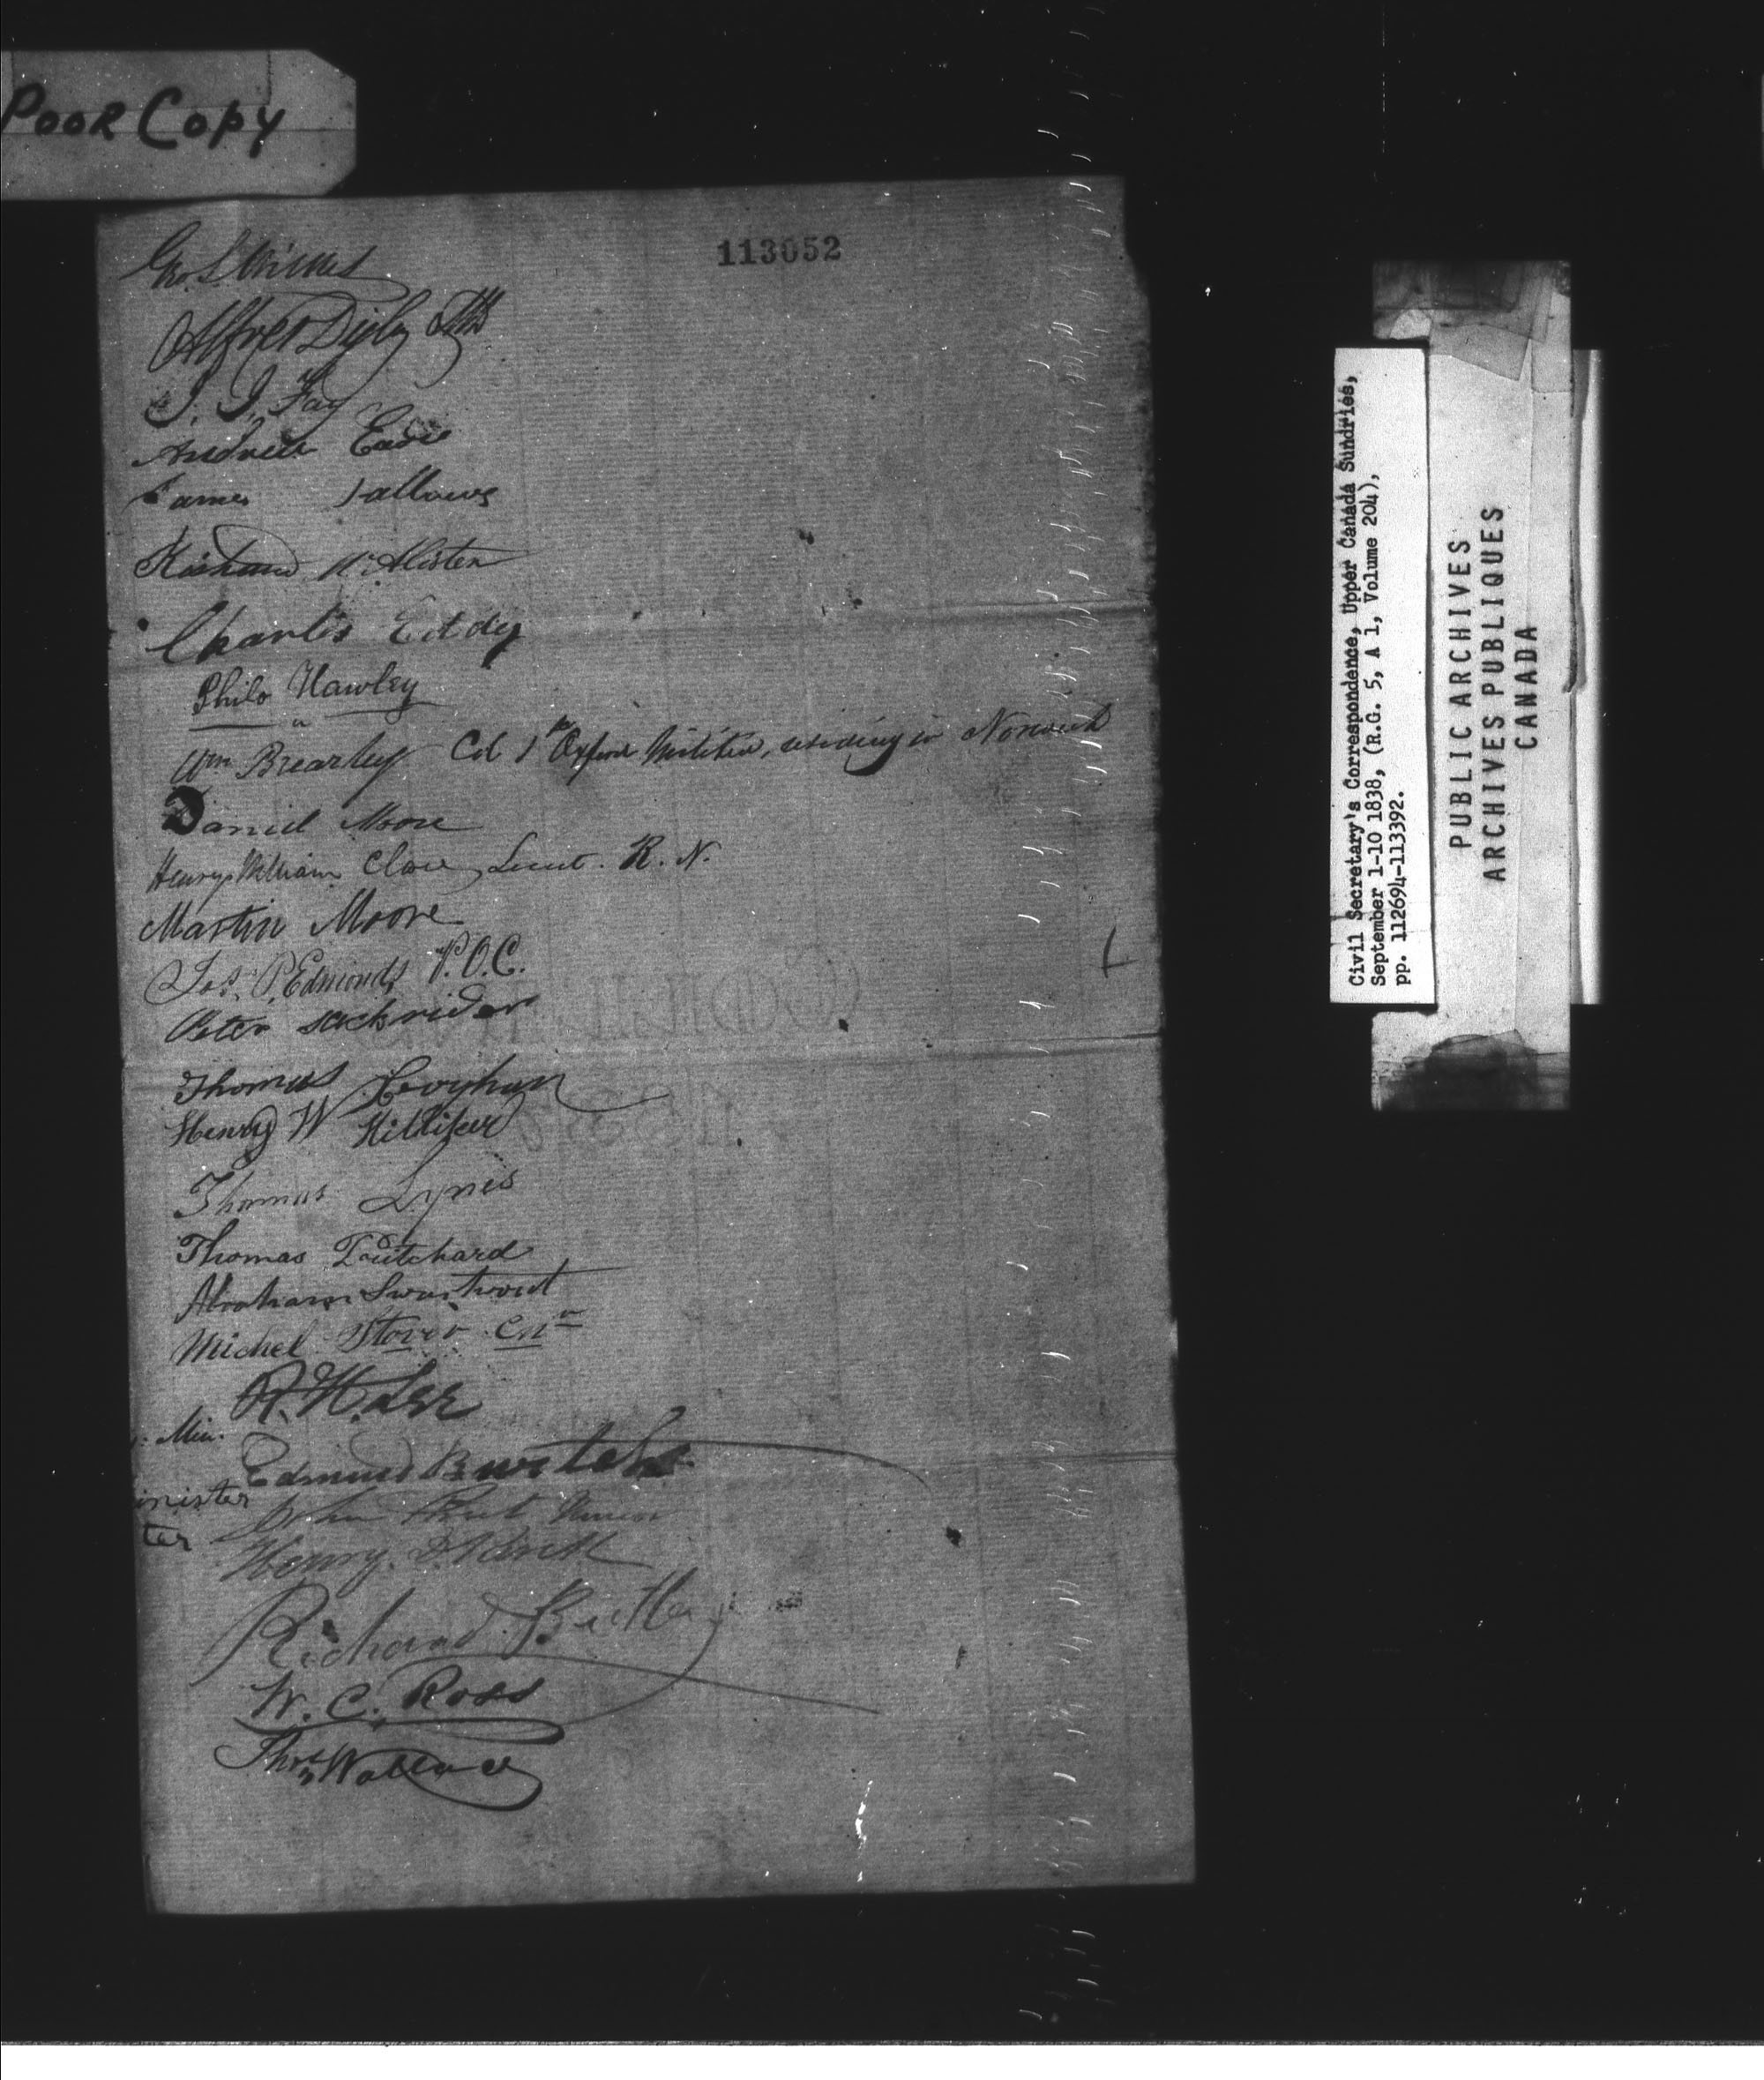 Poor Copy
113052
Geo. S. Wilkes
Alfred Digby
J. J. Fay
Andrew Eadie
James Fallows
Richard McAlister
Charles Eddy
Philo Hawley
Wm Brearley Col 1st Oxford Militia, residing in Norwich
Daniel Moore
Henry William Lieut. R. N.
Martin Moore
Jas. P. Edmonds P.O.C.
Peter sackrider
Thomas
Henry W Hilliker
Thomas Lynes
Thomas
Abraham Swartwout
Michel Stover
R. H. Lee
Min.
Edmund Burtch
inister
ter
Henry
Richard
W. C. Ross
Thos Wallace
Civil Secretary's Correspondence, Upper Canada Sundries,
September 1-10 1838, (R.G. 5, A 1, Volume 204),
pp. 112694-113392.
PUBLIC ARCHIVES
ARCHIVES PUBLIQUES
CANADA